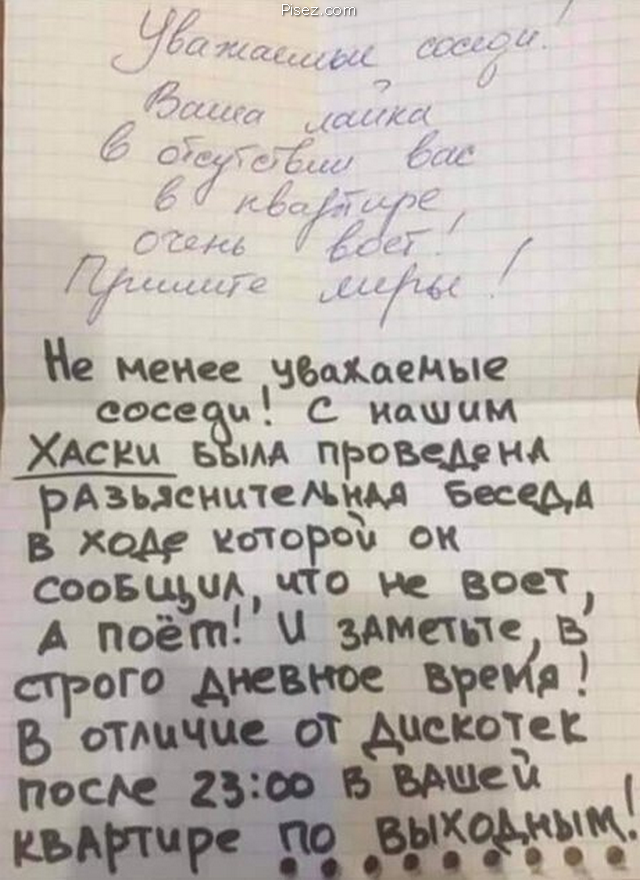 Pisez.com
Уважаемые соседи!
Ваша лайка
в отсутствии вас
в квартире,
очень воет!
Примите меры!
Не менее уважаемые
соседи! С нашим
ХАСКИ была проведена
разьяснительная беседа
в ходе которой он
сообщил, что не воет,
а поёт! И заметьте, в
строго дневное время!
В отличие от дискотек
после 23:00 в вашей
квартире по выходным!